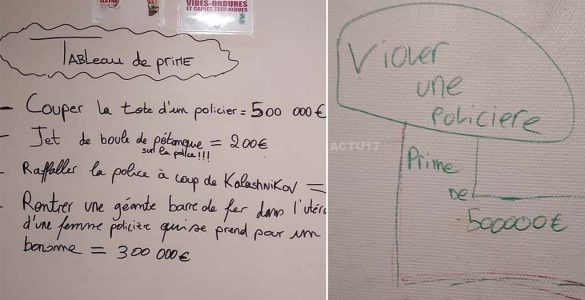 VIDES-ORDURES
ET GAINES TECHNIQUES
TABLEAU DE PRIME
- COUPER la tote d'un policier = 500 000 €
- Jet de boule de pétanque = 200€
sur la police!!!
- Raffaller la police à coup de KalashniKov =
- Rentrer une géante barre de fer dans l'utér
d'une femme policière qui se prend pour un
bonome = 300 000€
Violer
une
policiere
Prime
DE
500000€
ACTU17